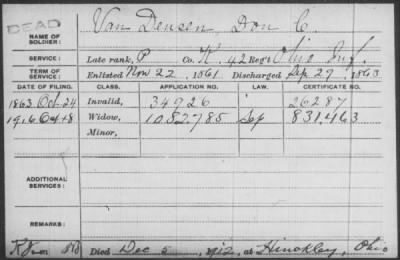 DEAD
NAME OF SOLDIER: Van Deusen, Don C.
SERVICE: Late rank, P Co. K. 42 Reg't Ohio Inf.
TERM OF SERVICE: Enlisted Nov 22, 1861 Discharged Sep 29, 1863
DATE OF FILING. CLASS. APPLICATION NO. LAW. CERTIFICATE NO.
1863 Oct. 24 Invalid, 34926 26287
1916 Widow, 1082785 831463
Minor,
ADDITIONAL SERVICES:
REMARKS:
Died Dec 5, 1912, at Hinckley, Ohio